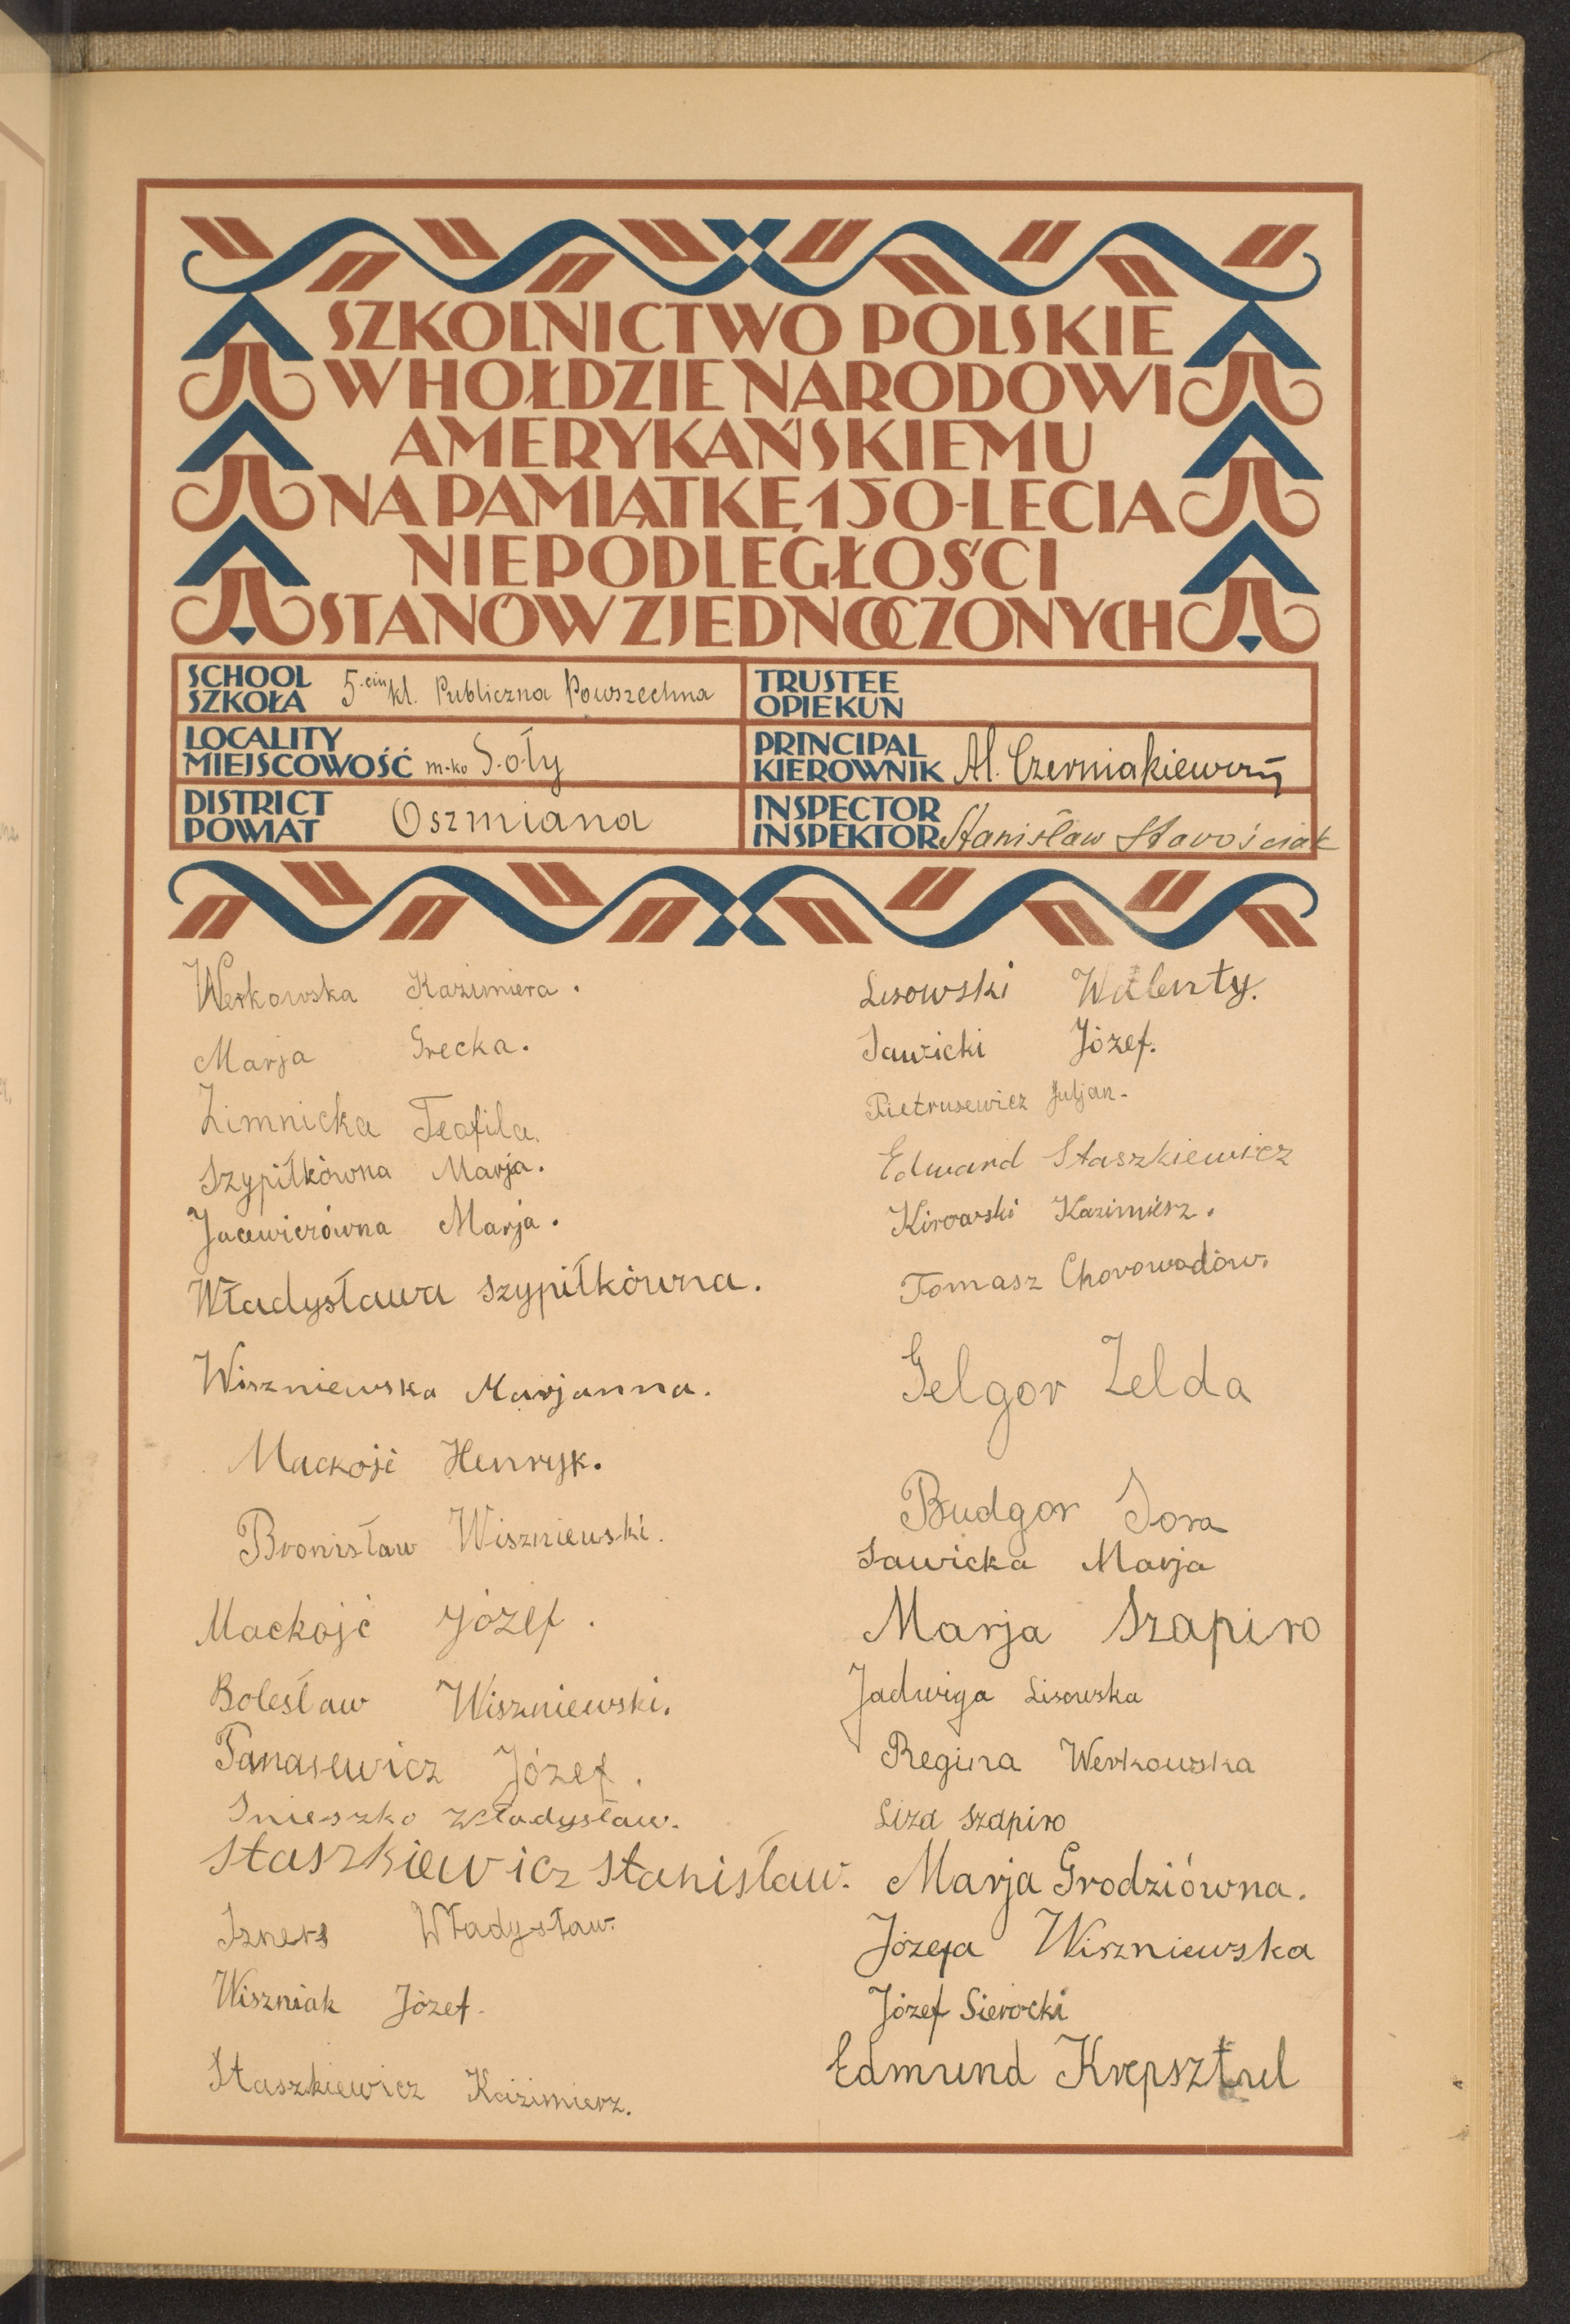 SZKOLNICTWO POLSKIE
W HOŁDZIE NARODOWI
AMERYKAŃSKIEMU
NA PAMIĄTKĘ 150-LECIA
NIEPODLEGŁOŚCI
STANÓW ZJEDNOCZONYCH
SCHOOL
SZKOŁA 5-ciu kl. Publiczna Powszechna
TRUSTEE
OPIEKUN
LOCALITY
MIEJSCOWOŚĆ m-ko Soły
PRINCIPAL
KIEROWNIK Al. Czerniakiewicz
DISTRICT
POWIAT Oszmiana
INSPECTOR
INSPEKTOR Stanisław Starościak
Werkowska Kazimiera.
Marja Grecka.
Zimnicka Teofila.
Szypiłkówna Marja.
Jacewiczówna Marja.
Władysława Szypiłkówna.
Wiszniewska Marjanna.
Mackojć Henryk.
Bronisław Wiszniewski.
Mackojć Józef.
Bolesław Wiszniewski.
Panasewicz Józef.
Śnieszko Władysław.
Staszkiewicz Stanisław.
Izners Władysław.
Wiszniak Józef.
Staszkiewicz Kazimierz.
Lisowski Walenty.
Sawicki Józef.
Pietrusewicz Juljan.
Edward Staszkiewicz
Kirowski Kazimierz.
Tomasz Chorowadów.
Gelgor Zelda
Budgor Sora
Sawicka Marja
Marja Szapiro
Jadwiga Lisowska
Regina Werkowska
Liza Szapiro
Marja Grodziówna.
Józefa Wiszniewska
Józef Sierocki
Edmund Krepsztul